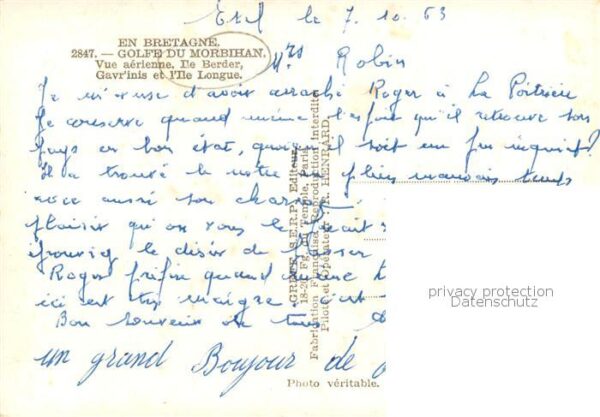 Etel le 7. 10. 63
EN BRETAGNE.
2847. — GOLFE DU MORBIHAN.
Vue aérienne. Ile Berder,
Gavr'inis et l'Ile Longue.
Mrs Robin
Je m'excuse d'avoir arraché Roger à La
Je conserve quand même l'espoir qu'il retrouve son
pays en bon état, quoiqu'il soit un peu inquiet?
Il a trouvé le notre plus mauvais temps
avec aussi son charme.
plaisir qu'on vous le
le désir de
Roger préfère quand même
ici est très maigre. c'est
Bon souvenir de tous
un grand Bonjour de
GREFF, S.E.R.P. Editeurs
18-20, Fg. du Temple, Paris
Fabrication Française Reproduction interdite
Pilote et Opérateur : R. HENRARD.
Photo véritable.
privacy protection
Datenschutz